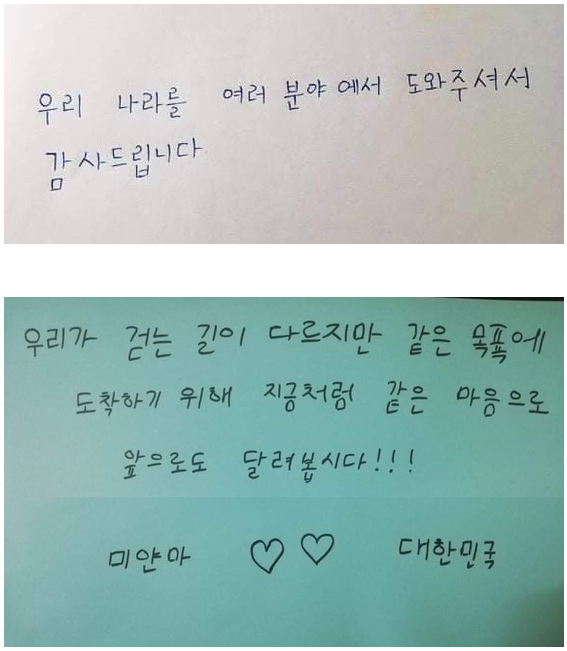 우리 나라를 여러 분야에서 도와주셔서
감사드립니다
우리가 걷는 길이 다르지만 같은 목푝에
도착하기 위해 지금처럼 같은 마음으로
앞으로도 달려봅시다!!!
미얀마 ♡♡ 대한민국